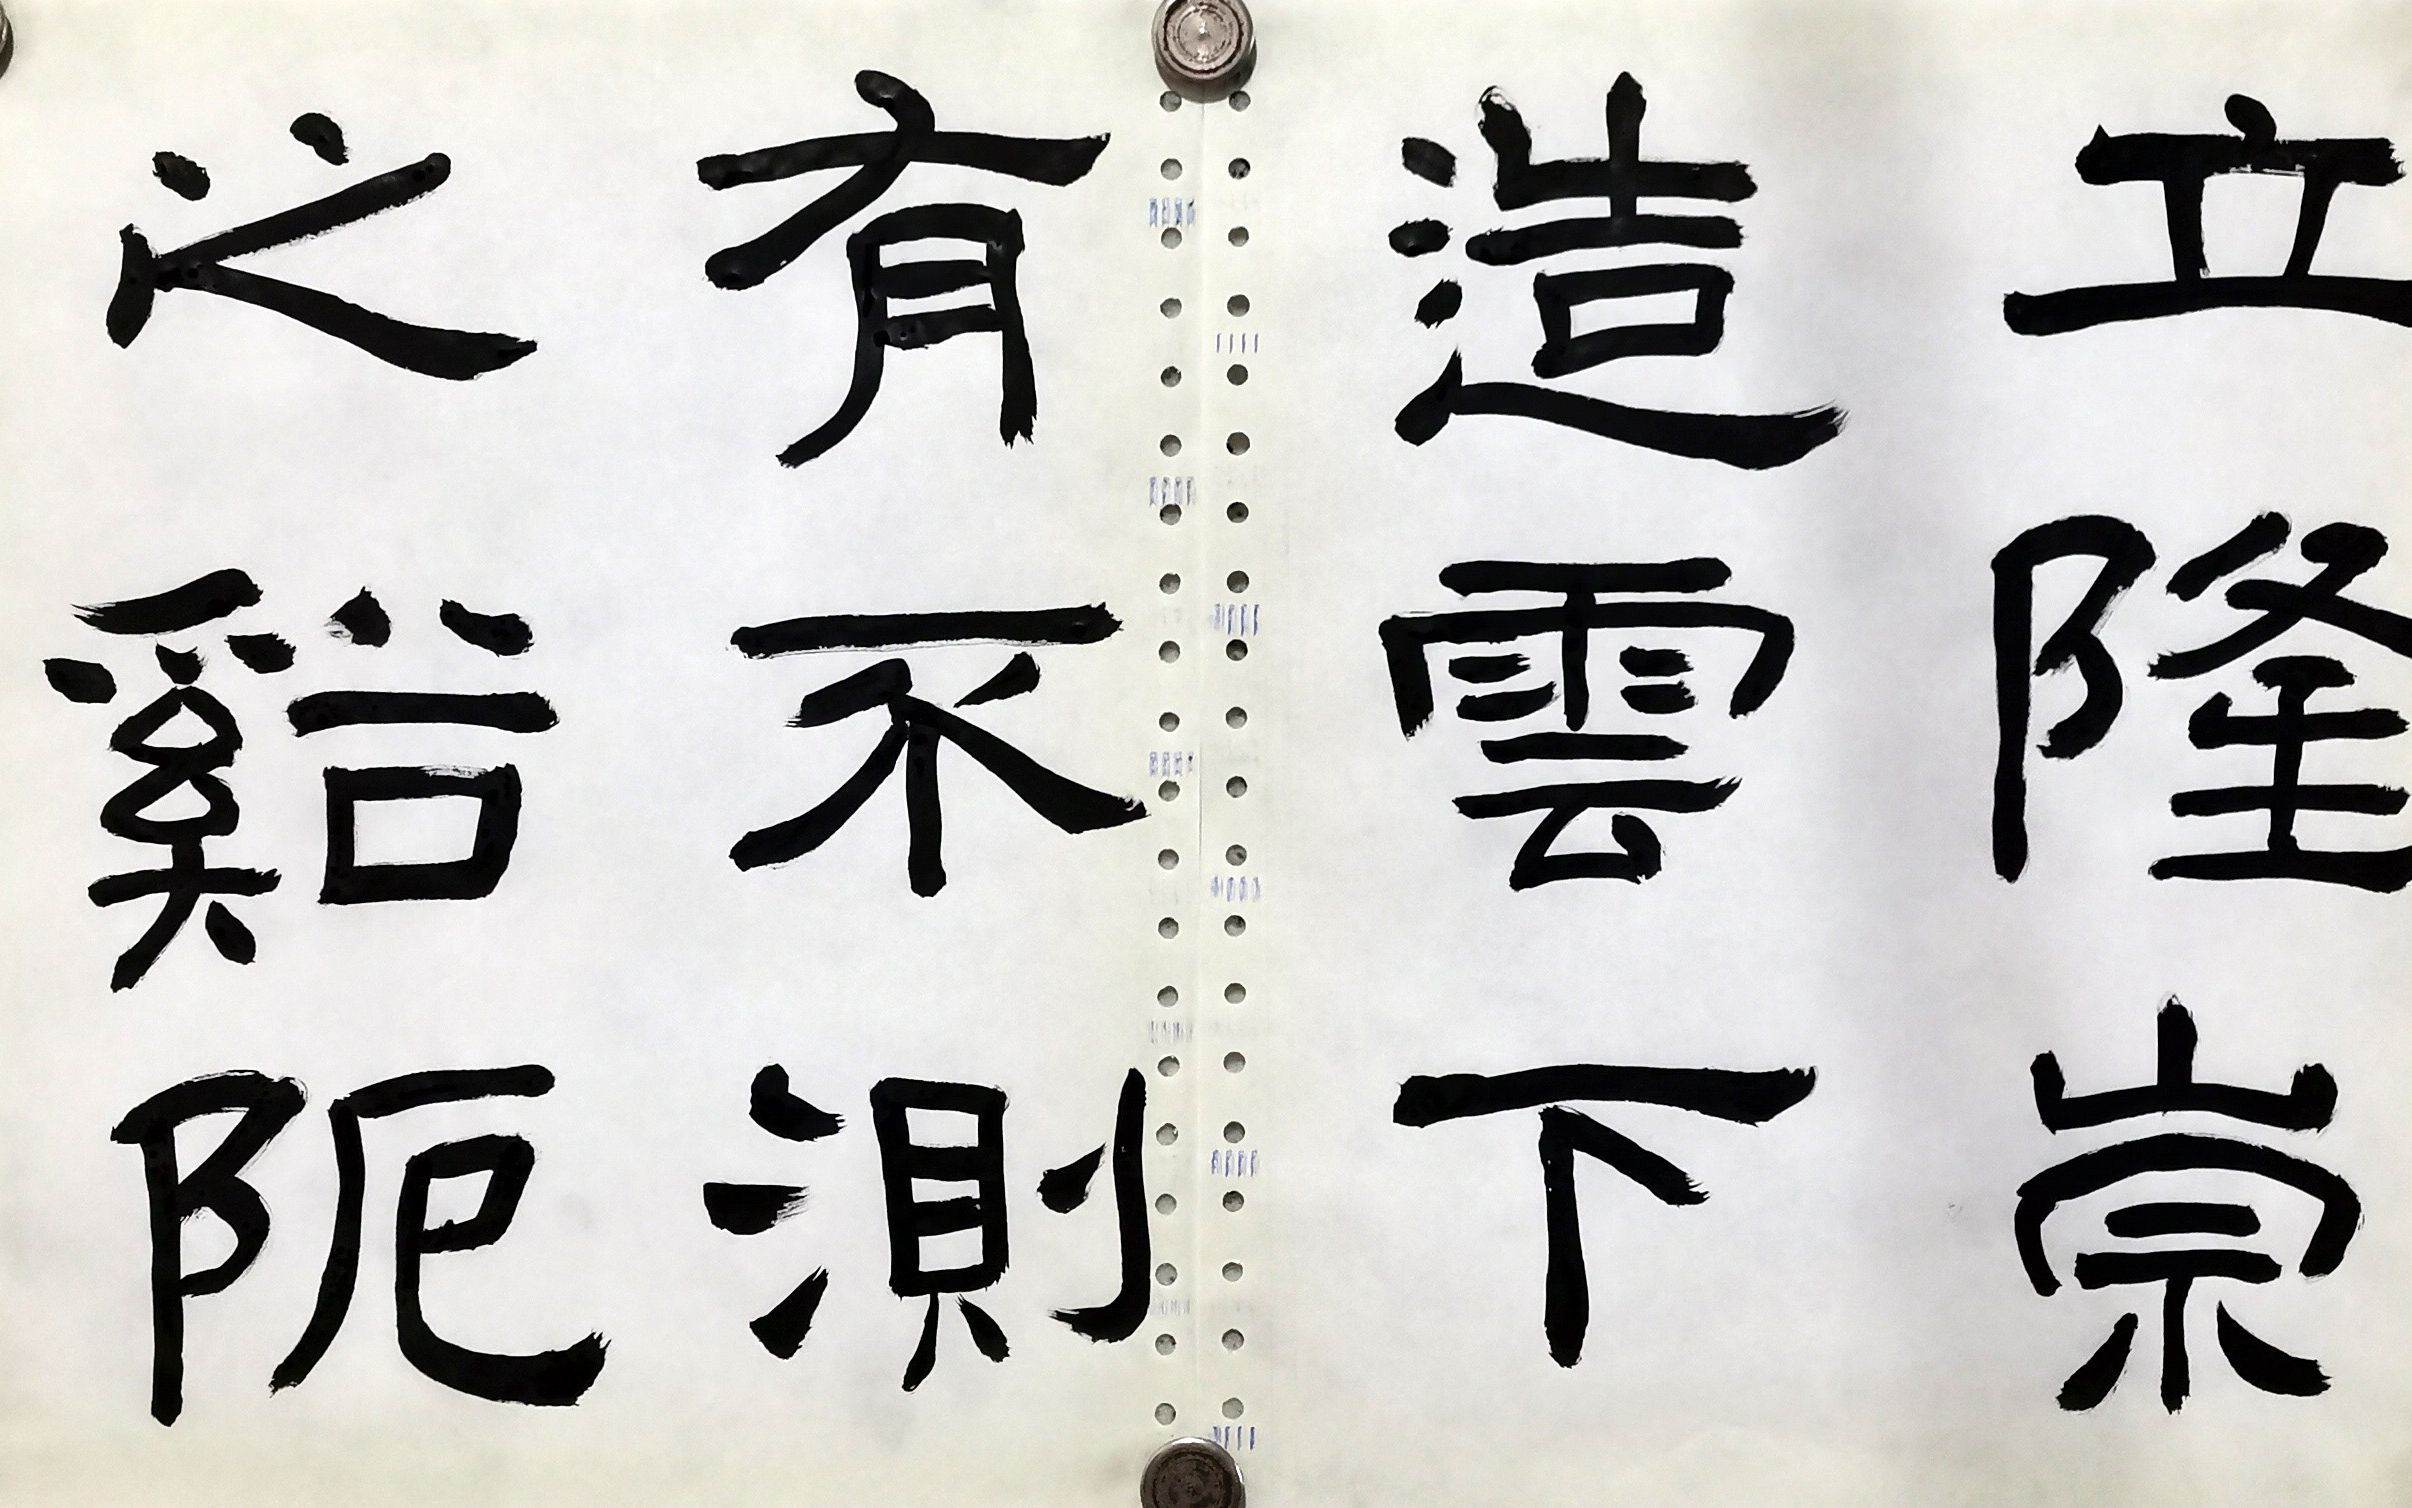 立隆崇
造雲下
有不測
之谿阨